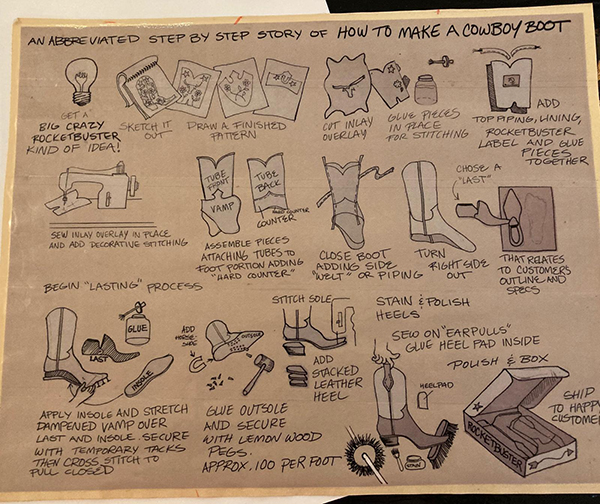 AN ABBREVIATED STEP BY STEP STORY OF HOW TO MAKE A COWBOY BOOT
GET A
BIG CRAZY
ROCKETBUSTER
KIND OF IDEA!
SKETCH IT
OUT
DRAW A FINISHED
PATTERN
CUT INLAY
OVERLAY
GLUE PIECES
IN PLACE
FOR STITCHING
ADD
TOP PIPING, LINING,
ROCKETBUSTER
LABEL AND GLUE
PIECES
TOGETHER
SEW INLAY OVERLAY IN PLACE
AND ADD DECORATIVE STITCHING
TUBE
FRONT
VAMP
TUBE
BACK
HARD COUNTER
COUNTER
ASSEMBLE PIECES
ATTACHING TUBES TO
FOOT PORTION ADDING
"HARD COUNTER"
CLOSE BOOT
ADDING SIDE
"WELT" OR PIPING
TURN
RIGHT SIDE
OUT
CHOSE A
"LAST"
THAT RELATES
TO CUSTOMERS
OUTLINE AND
SPECS
BEGIN "LASTING" PROCESS
GLUE
LAST
INSOLE
APPLY INSOLE AND STRETCH
DAMPENED VAMP OVER
LAST AND INSOLE. SECURE
WITH TEMPORARY TACKS
THEN CROSS STITCH TO
PULL CLOSED
ADD
HORSE-
SHOE
OUTSOLE
GLUE OUTSOLE
AND SECURE
WITH LEMON WOOD
PEGS.
APPROX. 100 PER FOOT
STITCH SOLE
ADD
STACKED
LEATHER
HEEL
STAIN & POLISH
HEELS
SEW ON "EARPULLS"
GLUE HEEL PAD INSIDE
HEELPAD
STAIN
POLISH & BOX
ROCKETBUSTER
SHIP
TO HAPPY
CUSTOMER